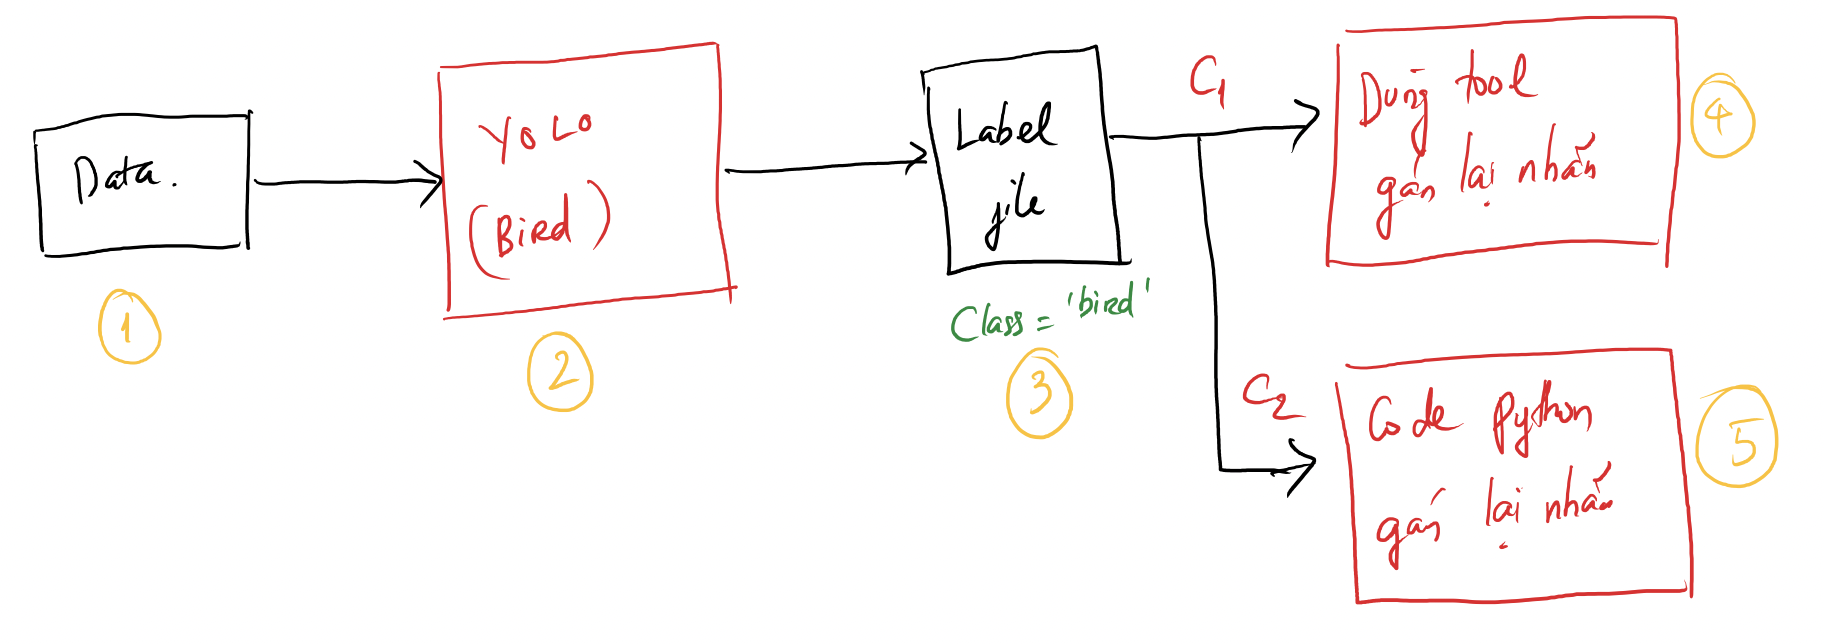 Data.
1
YOLO
(Bird)
2
Label
file
Class = 'bird'
3
C1
Dùng tool
gán lại nhãn
4
C2
Code Python
gán lại nhãn
5